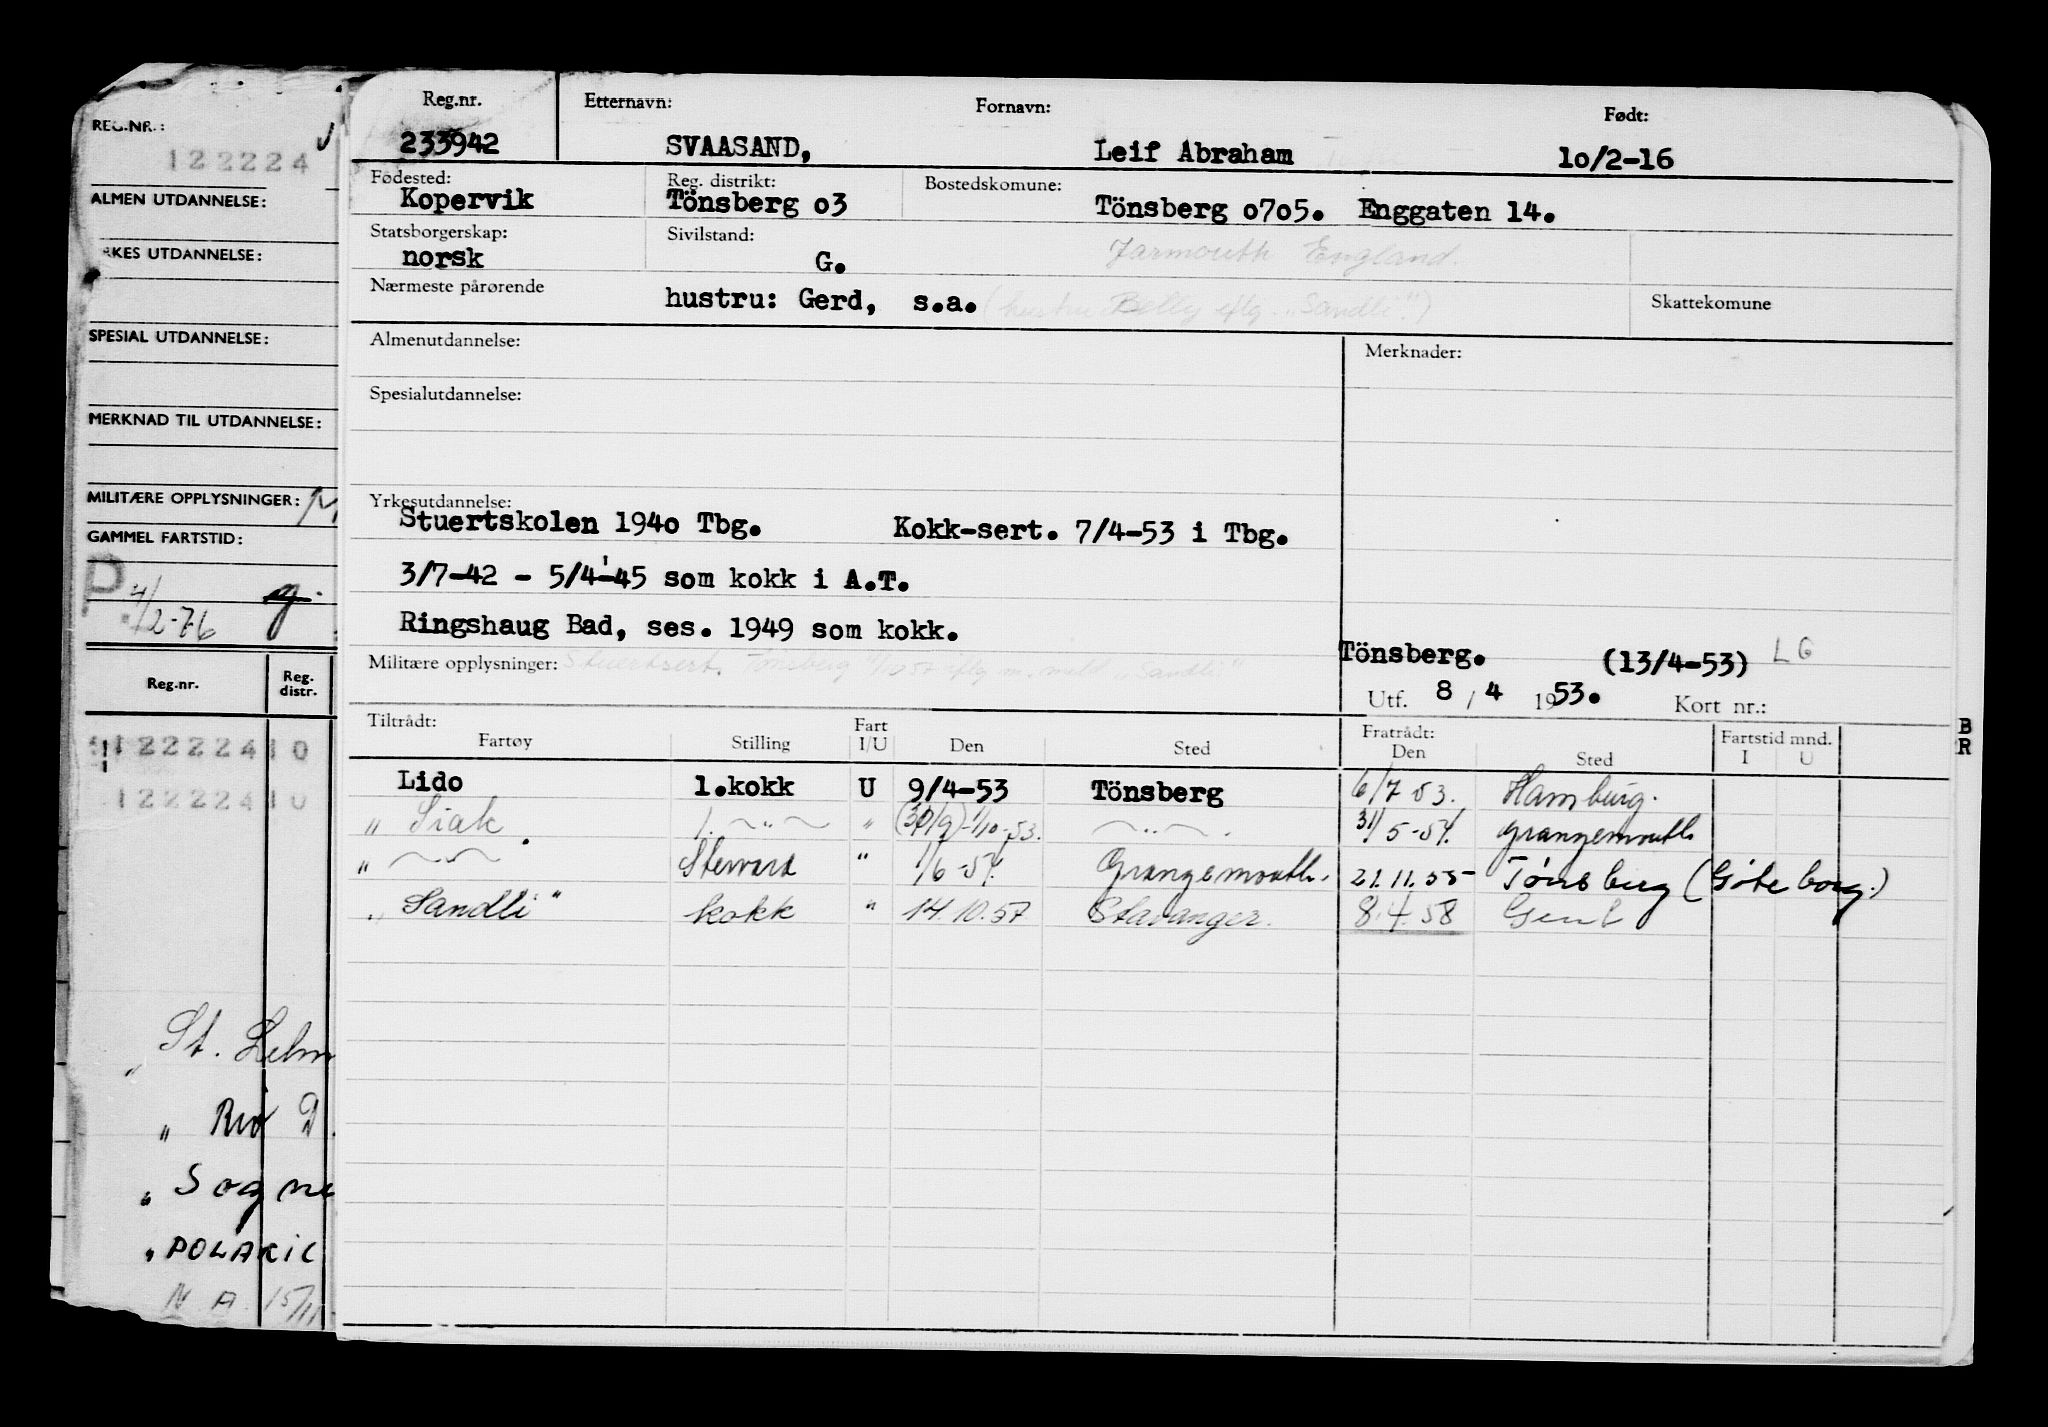 REG.NR.:
122224
ALMEN UTDANNELSE:
RKES UTDANNELSE:
SPESIAL UTDANNELSE:
MERKNAD TIL UTDANNELSE:
MILITÆRE OPPLYSNINGER:
GAMMEL FARTSTID:
P 4/2-76 g.
Reg.nr. Reg. distr.
122224 10
122224 10
" St. Helm
" Rio D
" Sogne
" POLARIC
N. A. 15/11
Reg.nr. Etternavn: Fornavn: Født:
233942 SVAASAND, Leif Abraham 10/2-16
Fødested: Reg. distrikt: Bostedskomune:
Kopervik Tönsberg o3 Tönsberg o7o5. Enggaten 14.
Statsborgerskap: Sivilstand:
norsk G. Jarmouth England.
Nærmeste pårørende hustru: Gerd, s.a. (hustru Betty iflg. "Sandli") Skattekomune
Almenutdannelse: Merknader:
Spesialutdannelse:
Yrkesutdannelse:
Stuertskolen 194o Tbg. Kokk-sert. 7/4-53 i Tbg.
3/7-42 - 5/4-45 som kokk i A.T.
Ringshaug Bad, ses. 1949 som kokk.
Militære opplysninger: Stuertsert. Tønsberg iflg m. meld "Sandli"
Tönsberg. (13/4-53) LG
Utf. 8 / 4 1953. Kort nr.:
Tiltrådt: Fart Fratrådt: Fartstid mnd.
Fartøy Stilling I/U Den Sted Den Sted I U
B
R
Lido 1.kokk U 9/4-53 Tönsberg 6/7 53. Hamburg.
" Siak 1. —"— " (30/9)-1/10-53. —"—. 31/5-54. Grangemouth
" —"— Steward " 1/6-54. Grangemouth. 21.11.55 Tønsberg (Göteborg.)
" Sandli" kokk " 14.10.57 Stavanger. 8.4.58 Gent